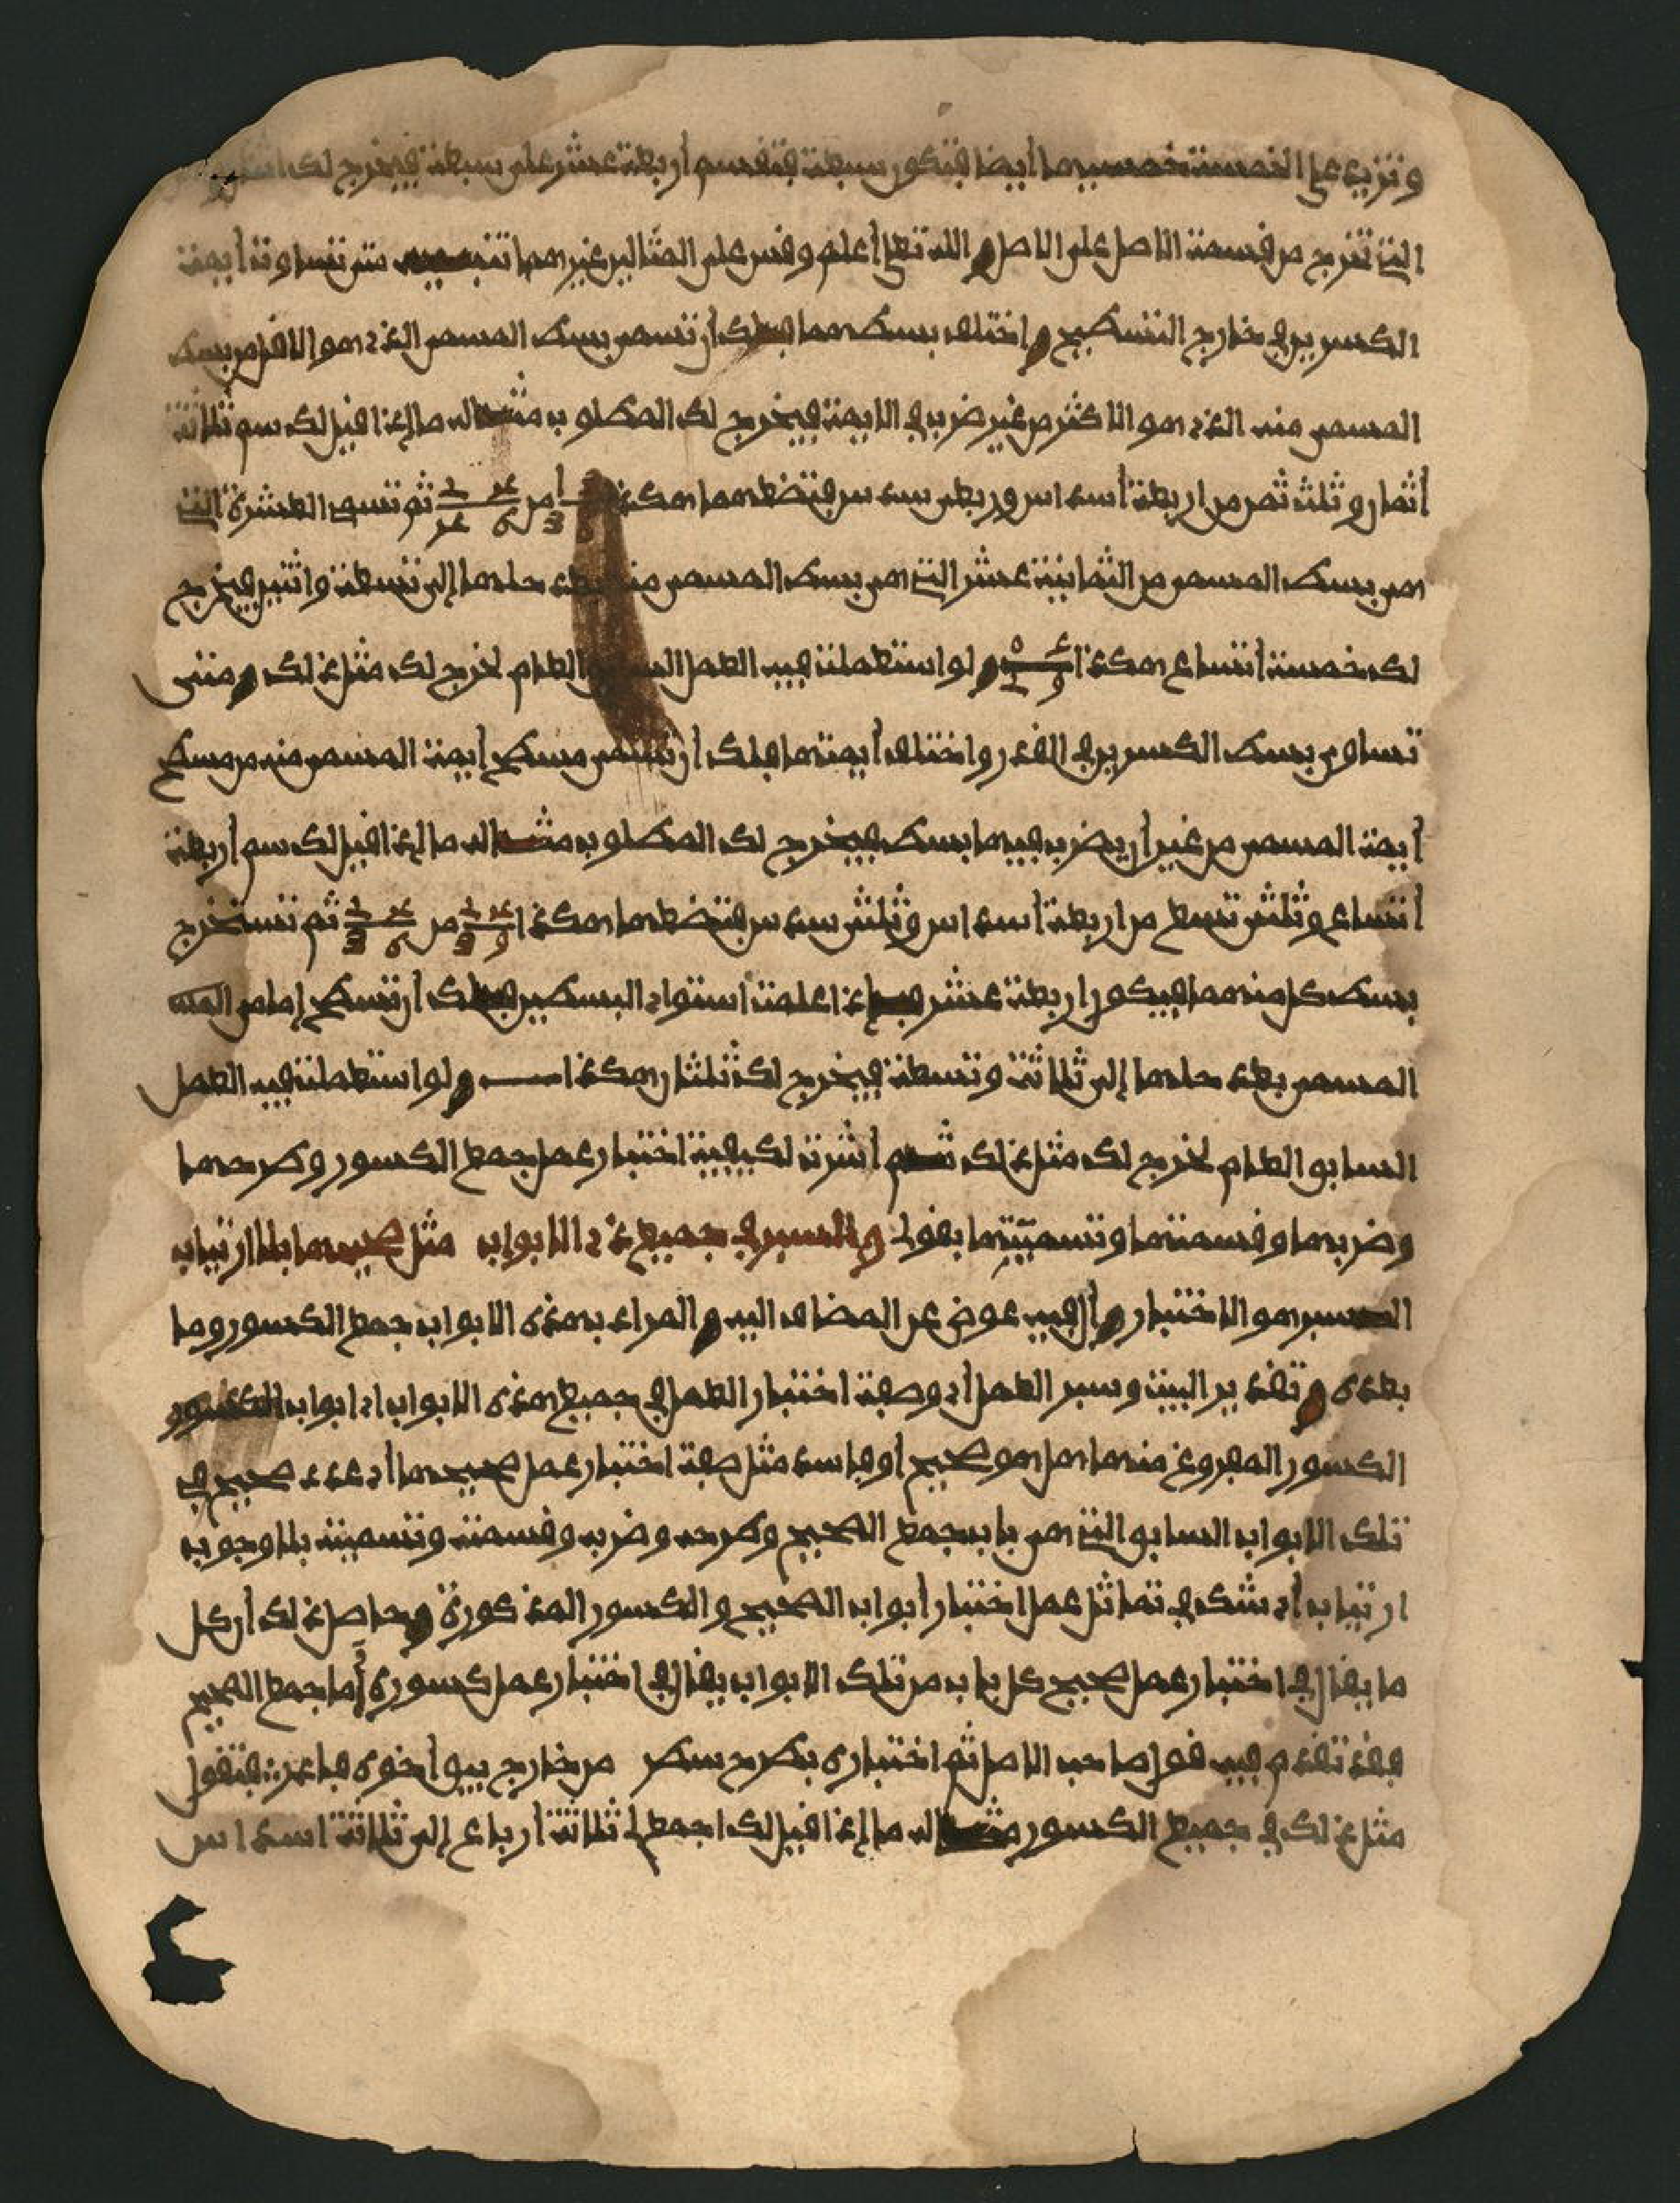 وتزيد على الخمسة خمسيها أيضا فتكون سبعة فتقسم أربعة عشر على سبعة فيخرج لك
التي تخرج من قسمة الاصل على الاصل والله تعلى أعلم وقس على المثالين غيرهما تنبيه متى تساوت أيمة
الكسرين في خارج التسطيح واختلف بسطهما فلك أن تسمي بسط المسمى الذي هو الاقل من بسط
المسمى منه الذي هو الاكثر من غير ضربه في الايمة فيخرج لك المطلوب مثاله ما إذا قيل لك سم ثلاثة
أثمان وثلث ثمن من اربعة أسداس وربعي سدس فتضعهما هكذا من ثم تسمي العشرة التي
هي بسط المسمى من الثمانية عشر التي هي بسط المسمى منه بعد حلها إلى تسعة واثنين فيخرج
لك خمسة أتساع هكذا ولو استعملت فيه العمل السابق العام لخرج لك مثل ذلك ومتى
تساوى بسط الكسرين في القدر واختلف أيمتهما فلك أن تسمي مسطح أيمة المسمى منه من مسطح
أيمة المسمى من غير أن يضرب فيهما بسط فيخرج لك المطلوب مثاله ما إذا قيل لك سم أربعة
أتساع وثلثي تسع من اربعة أسداس وثلثي سدس فتضعهما هكذا من ثم تستخرج
بسط كل منهما فيكون اربعة عشر فإذا علمت استواء البسطين فلك أن تسطح إمام
المسمى بعد حلها إلى ثلاثة وتسعة فيخرج لك ثلثان هكذا ولو استعملت فيه العمل
السابق العام لخرج لك مثل ذلك ثم أشرت لكيفية اختبار عمل جمع الكسور وطرحها
وضربها وقسمتها وتسميتها بقولي والسبر في جميع ذي الابواب مثل صحيحها بلا ارتياب
السبر هو الاختبار وأل فيه عوض عن المضاف اليه والمراد بهذه الابواب جمع الكسور وما
بعده وتقدير البيت وسبر العمل أي وصفة اختبار العمل في جميع هذه الابواب اي ابواب الكسور
الكسور المفروغ منها هل هو صحيح أو فاسد مثل صفة اختبار عمل صحيحها أي عدد صحيح في
تلك الابواب السابق التي هي باب جمع الصحيح وطرحه وضربه وقسمته وتسميته بلا وجوب
ارتياب أي شك في تماثل عمل اختبار أبواب الصحيح والكسور المذكورة وحاصل ذلك أن كل
ما يقال في اختبار عمل صحيح كل باب من تلك الابواب يقال في اختبار عمل كسوره أما جمع الصحيح
فقد تقدم فيه قول صاحب الاصل ثم اختباره بطرح سطر من خارج يبقى أخوه فاعرف فتقول
مثل ذلك في جميع الكسور مثاله ما إذا قيل لك اجمع لي ثلاثة أرباع إلى ثلاثة اسداس